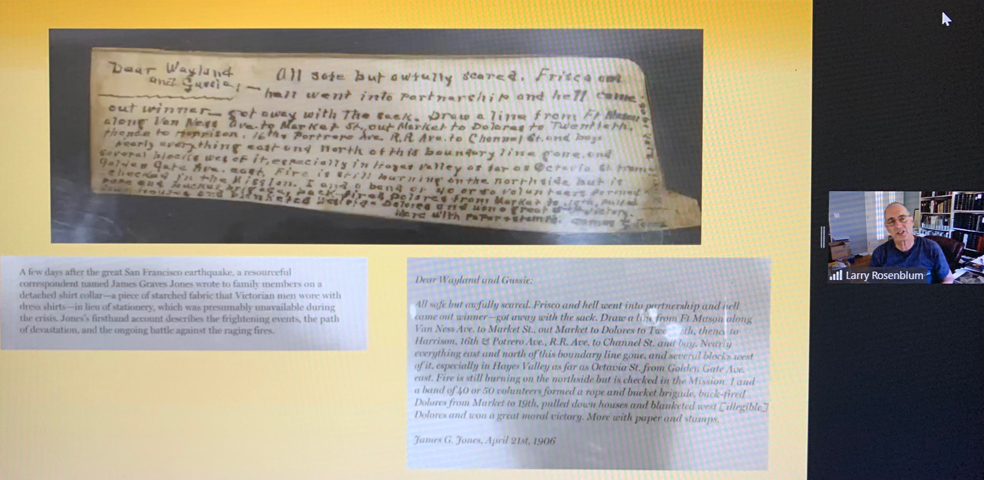 Dear Wayland
and Gussie; — All safe but awfully scared. Frisco and
hell went into partnership and hell came
out winner — got away with the sack. Draw a line from Ft Mason
along Van Ness Ave. to Market St., out Market to Dolores to Twentieth,
thence to Harrison, 16th & Portrero Ave. R.R. Ave. to Channel St. and bay.
Nearly everything east and north of this boundary line gone, and
several blocks west of it, especially in Hayes Valley as far as Octavia St. from
Golden Gate Ave. east. Fire is still burning on the northside but is
checked in the Mission. I and a band of 40 or 50 volunteers formed a
rope and bucket brigade, back-fired Dolores from Market to 19th, pulled
down houses and blanketed west Dolores and won a great victory.
More with paper & stamps.
A few days after the great San Francisco earthquake, a resourceful
correspondent named James Graves Jones wrote to family members on a
detached shirt collar—a piece of starched fabric that Victorian men wore with
dress shirts—in lieu of stationery, which was presumably unavailable during
the crisis. Jones's firsthand account describes the frightening events, the path
of devastation, and the ongoing battle against the raging fires.
Dear Wayland and Gussie:
All safe but awfully scared. Frisco and hell went into partnership and hell
came out winner—got away with the sack. Draw a line from Ft Mason along
Van Ness Ave. to Market St., out Market to Dolores to Twentieth, thence to
Harrison, 16th & Potrero Ave., R.R. Ave, to Channel St. and bay. Nearly
everything east and north of this boundary line gone, and several blocks west
of it, especially in Hayes Valley as far as Octavia St. from Golden Gate Ave.
east. Fire is still burning on the northside but is checked in the Mission. I and
a band of 40 or 50 volunteers formed a rope and bucket brigade, back-fired
Dolores from Market to 19th, pulled down houses and blanketed west [illegible]
Dolores and won a great moral victory. More with paper and stamps.
James G. Jones, April 21st, 1906
Larry Rosenblum